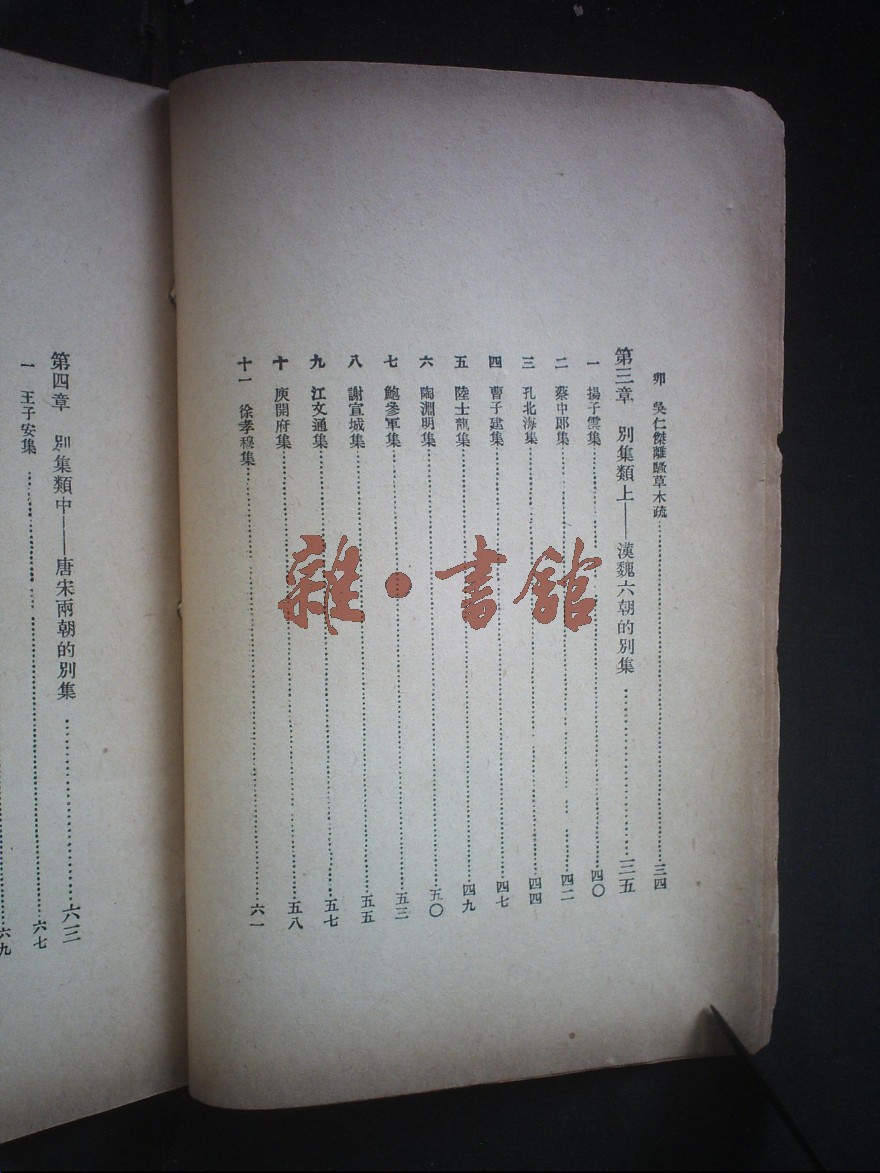 卯　吳仁傑離騷草木疏……三四
第三章　別集類上——漢魏六朝的別集……三五
一　揚子雲集……四〇
二　蔡中郎集……四二
三　孔北海集……四四
四　曹子建集……四七
五　陸士龍集……四九
六　陶淵明集……五〇
七　鮑參軍集……五三
八　謝宣城集……五五
九　江文通集……五七
十　庾開府集……五八
十一　徐孝穆集……六一
第四章　別集類中——唐宋兩朝的別集……六三
一　王子安集……六七
六九
雜·書館